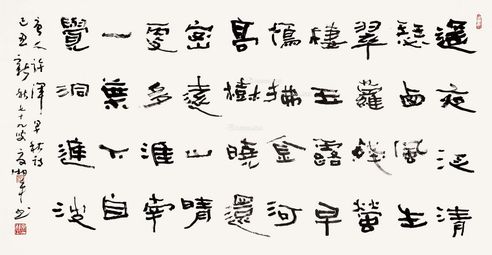 遥夜泛清
瑟西風生
翠蘿殘螢
棲玉露早
鴈拂金河
高樹曉還
密遠山晴
更多淮南
一葉下自
覺洞庭波
唐人許渾早秋詩
己丑新秋七十九叟